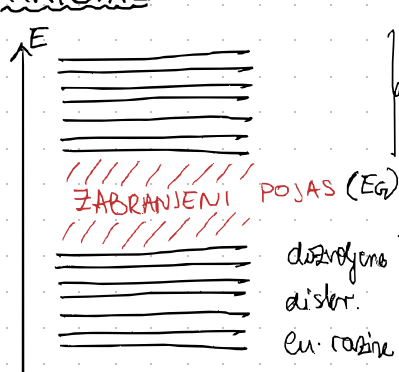 E
ZABRANJENI POJAS (EG)
dozvoljene
diskr.
en. razine